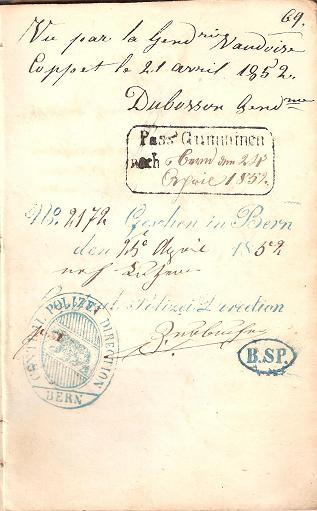 69.
Vu par la Gendrie Vaudoise
Coppet le 21 avril 1852.
Dubosson Gendme
Pass Gumminen
nach Bern den 24
April 1852
No. 2172 Gesehen in Bern
den 25e April 1852
nach
Central Polizei Direction
CENTRAL POLIZEI DIRECTION
BERN
B.SP.